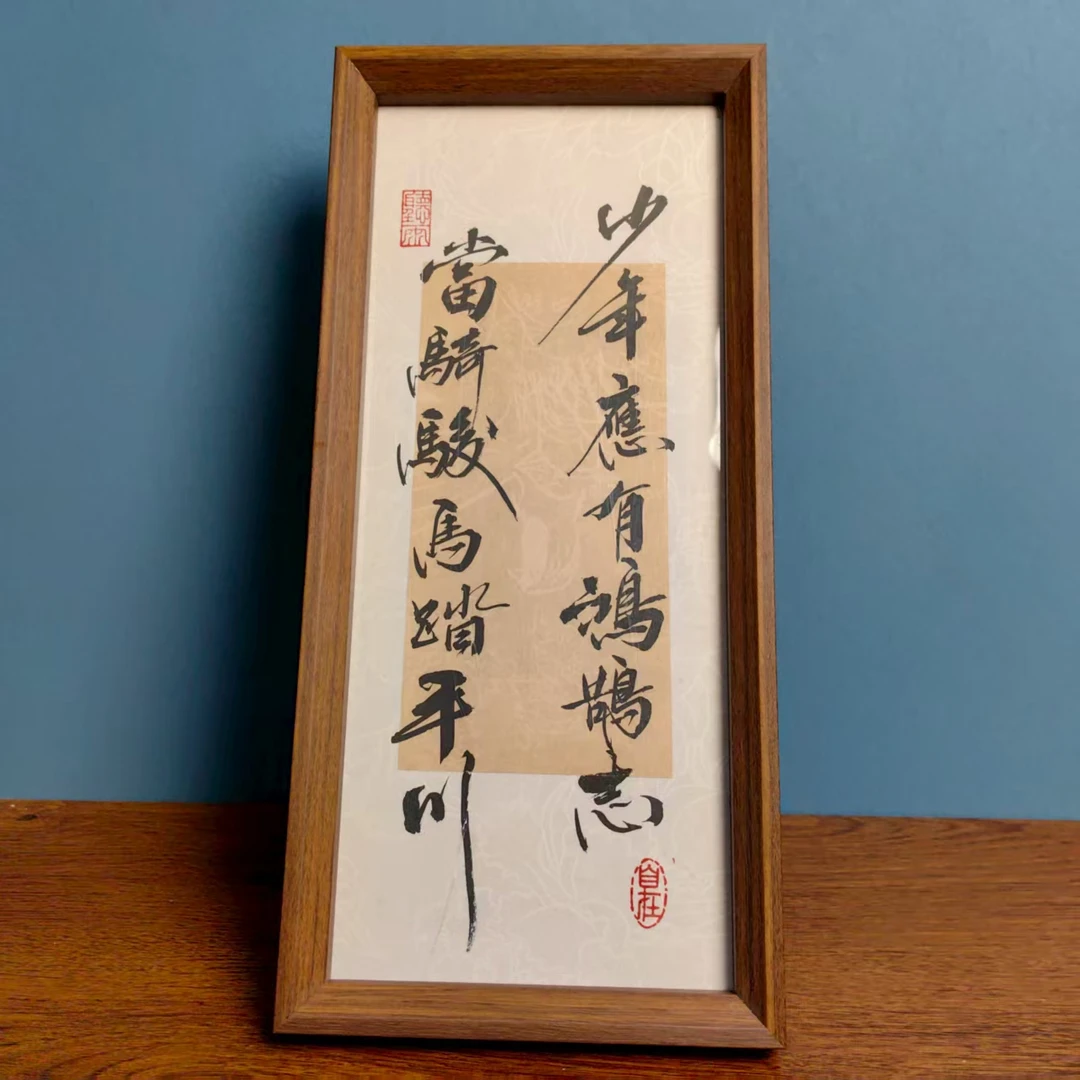 少年應有鴻鵠志
當騎駿馬踏平川
自在